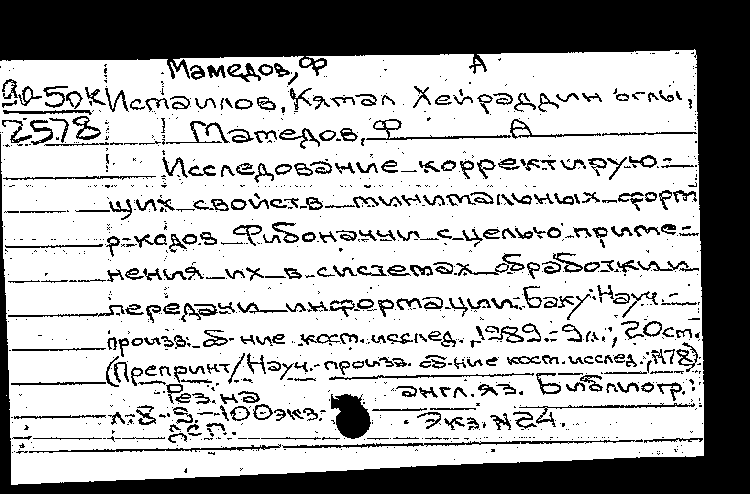 Мамедов, Ф А
90-50К Исмаилов, Кямал Хейраддин оглы,
2578 Мамедов, Ф А
Исследование корректирую-
щих свойств минимальных форм
p-кодов Фибоначчи с целью приме-
нения их в системах обработки и
передачи информации. Баку: Науч.-
произв. об-ние косм. исслед., 1989.- 9 л.; 20 см.
(Препринт/Науч.-произв. об-ние косм. исслед.; N78)
Рез. на англ. яз. Библиогр.:
л. 8-9.- 100 экз.
Экз. N24.